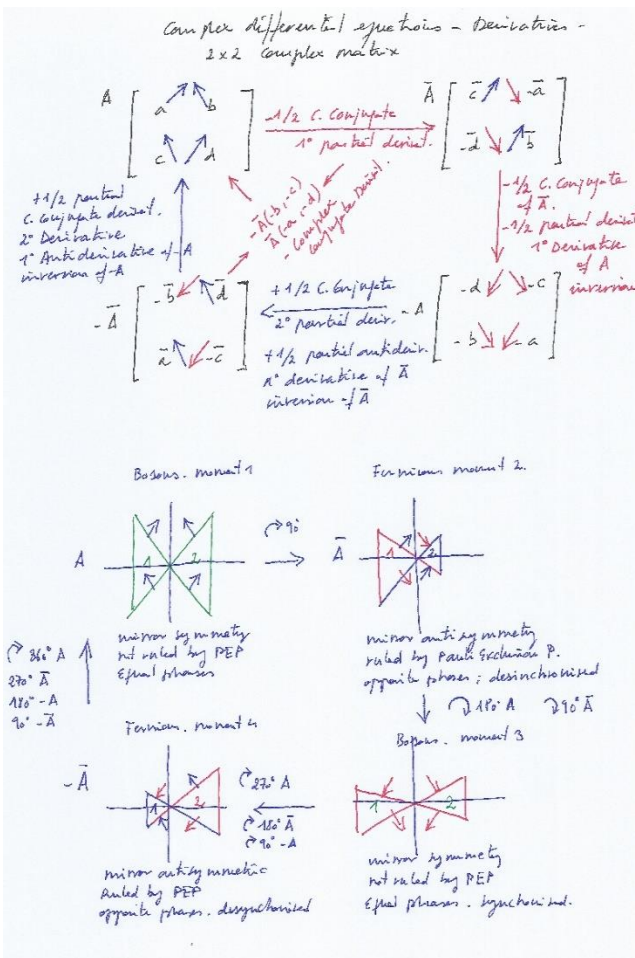 Complex differential equations - Derivatives -
2x2 complex matrix
A
a b
c d
-1/2 C. Conjugate
1º partial derivat.
Ā
c̄ -ā
-d̄ b̄
+1/2 partial
C. Conjugate derivat.
2º Derivative
1º Antiderivative of -A
inversion of -A
-Ā(-b, -c)
Ā(-a, -d)
- Complex
Conjugate Derivat.
-1/2 C. Conjugate
of Ā.
-1/2 partial derivat
1º Derivative
of A
inversion
-Ā
-b̄ d̄
ā -c̄
+1/2 C. Conjugate
2º partial deriv.
+1/2 partial antideriv.
derivative of Ā
inversion of Ā
-A
-d -c
-b -a
Bosons. moment 1
Fermions moment 2.
A
1 2
90º
Ā
1 2
mirror symmetry
not ruled by PEP
Equal phases
mirror antisymmetry
ruled by Pauli Exclusion P.
opposite phases; desinchronised
360º A
270º Ā
180º -A
90º -Ā
180º A 90º Ā
Fermions. moment 4
Bosons. moment 3
-Ā
1 2
270º A
180º Ā
90º -A
1 2
mirror antisymmetric
Ruled by PEP
opposite phases. desynchronised
mirror symmetry
not ruled by PEP
Equal phases. synchronised.